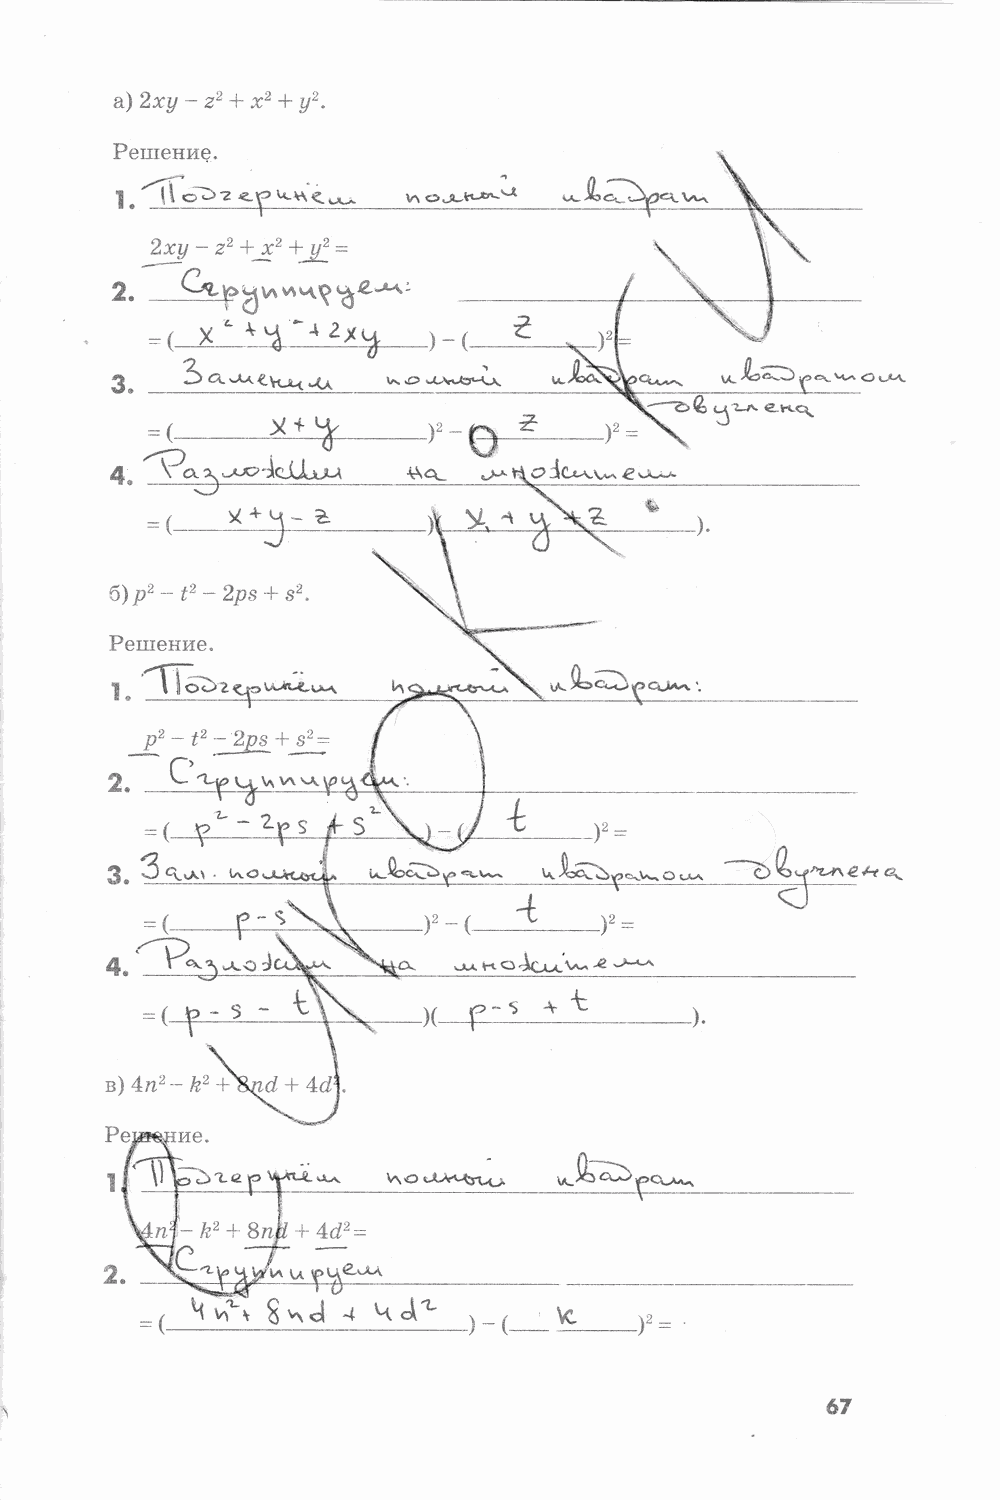 а) 2xy − z² + x² + y².
Решение.
1. Подчеркнём полный квадрат
2xy − z² + x² + y² =
2. Сгруппируем:
= ( x² + y² + 2xy ) − ( z )² =
3. Заменим полный квадрат квадратом
двучлена
= ( x + y )² − ( z )² =
4. Разложим на множители
= ( x + y − z )( x + y + z ).
б) p² − t² − 2ps + s².
Решение.
1. Подчеркнём полный квадрат:
p² − t² − 2ps + s² =
2. Сгруппируем:
= ( p² − 2ps + s² ) − ( t )² =
3. Зам. полный квадрат квадратом двучлена
= ( p − s )² − ( t )² =
4. Разложим на множители
= ( p − s − t )( p − s + t ).
в) 4n² − k² + 8nd + 4d².
Решение.
1. Подчеркнём полный квадрат
4n² − k² + 8nd + 4d² =
2. Сгруппируем
= ( 4n² + 8nd + 4d² ) − ( k )² =
67